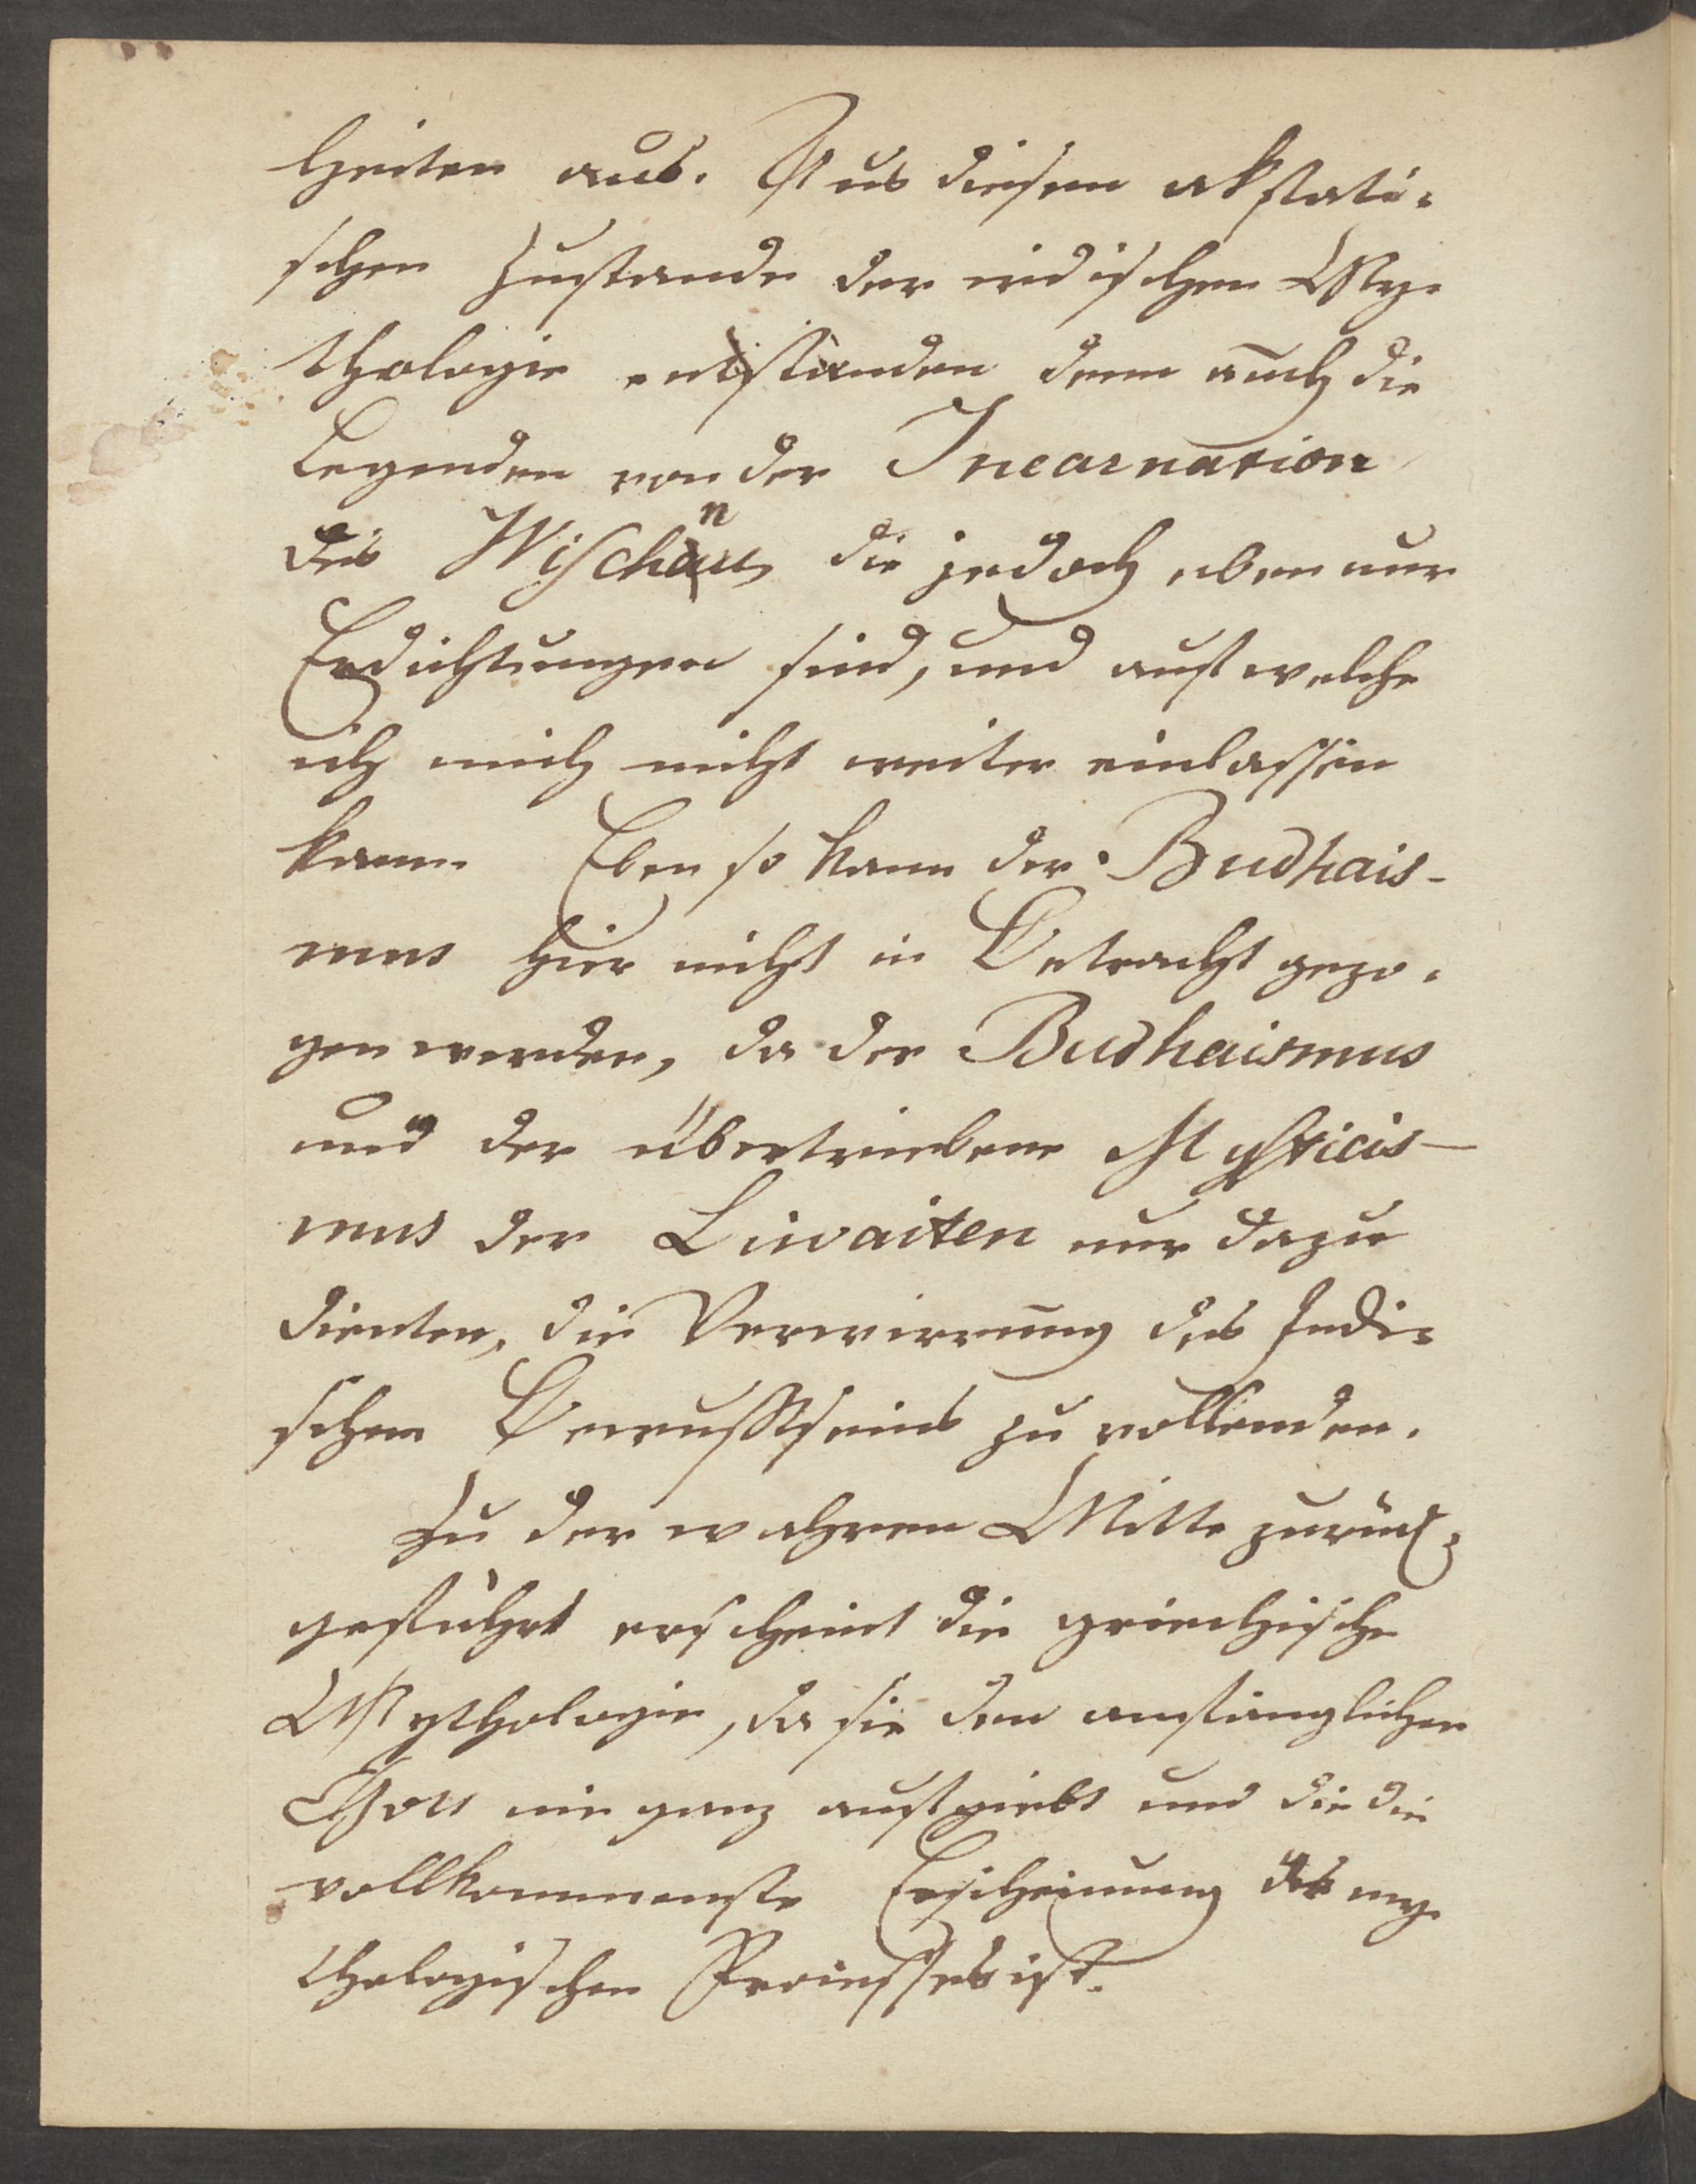 heiten aus. Aus diesem ekstati-
schen Zustande der indischen My-
thologie entstanden denn auch die
Legenden von der Incarnation
des Wischnu, die jedoch eben nur
Erdichtungen sind, und auf welche
ich mich nicht weiter einlassen
kann. Eben so kann der Budhais-
mus hier nicht in Betracht gezo-
gen werden, da der Budhaismus
und der übertriebene Mysticis-
mus der Liwaiten nur dazu
dienten, die Verwirrung des Indi-
schen Bewußtseins zu vollenden.
Zu der wahren Mitte zurück-
geführt erscheint die griechische
Mythologie, da sie den anfänglichen
Gott nie ganz aufgiebt und die die
vollkommenste Erscheinung des my-
thologischen Processes ist.